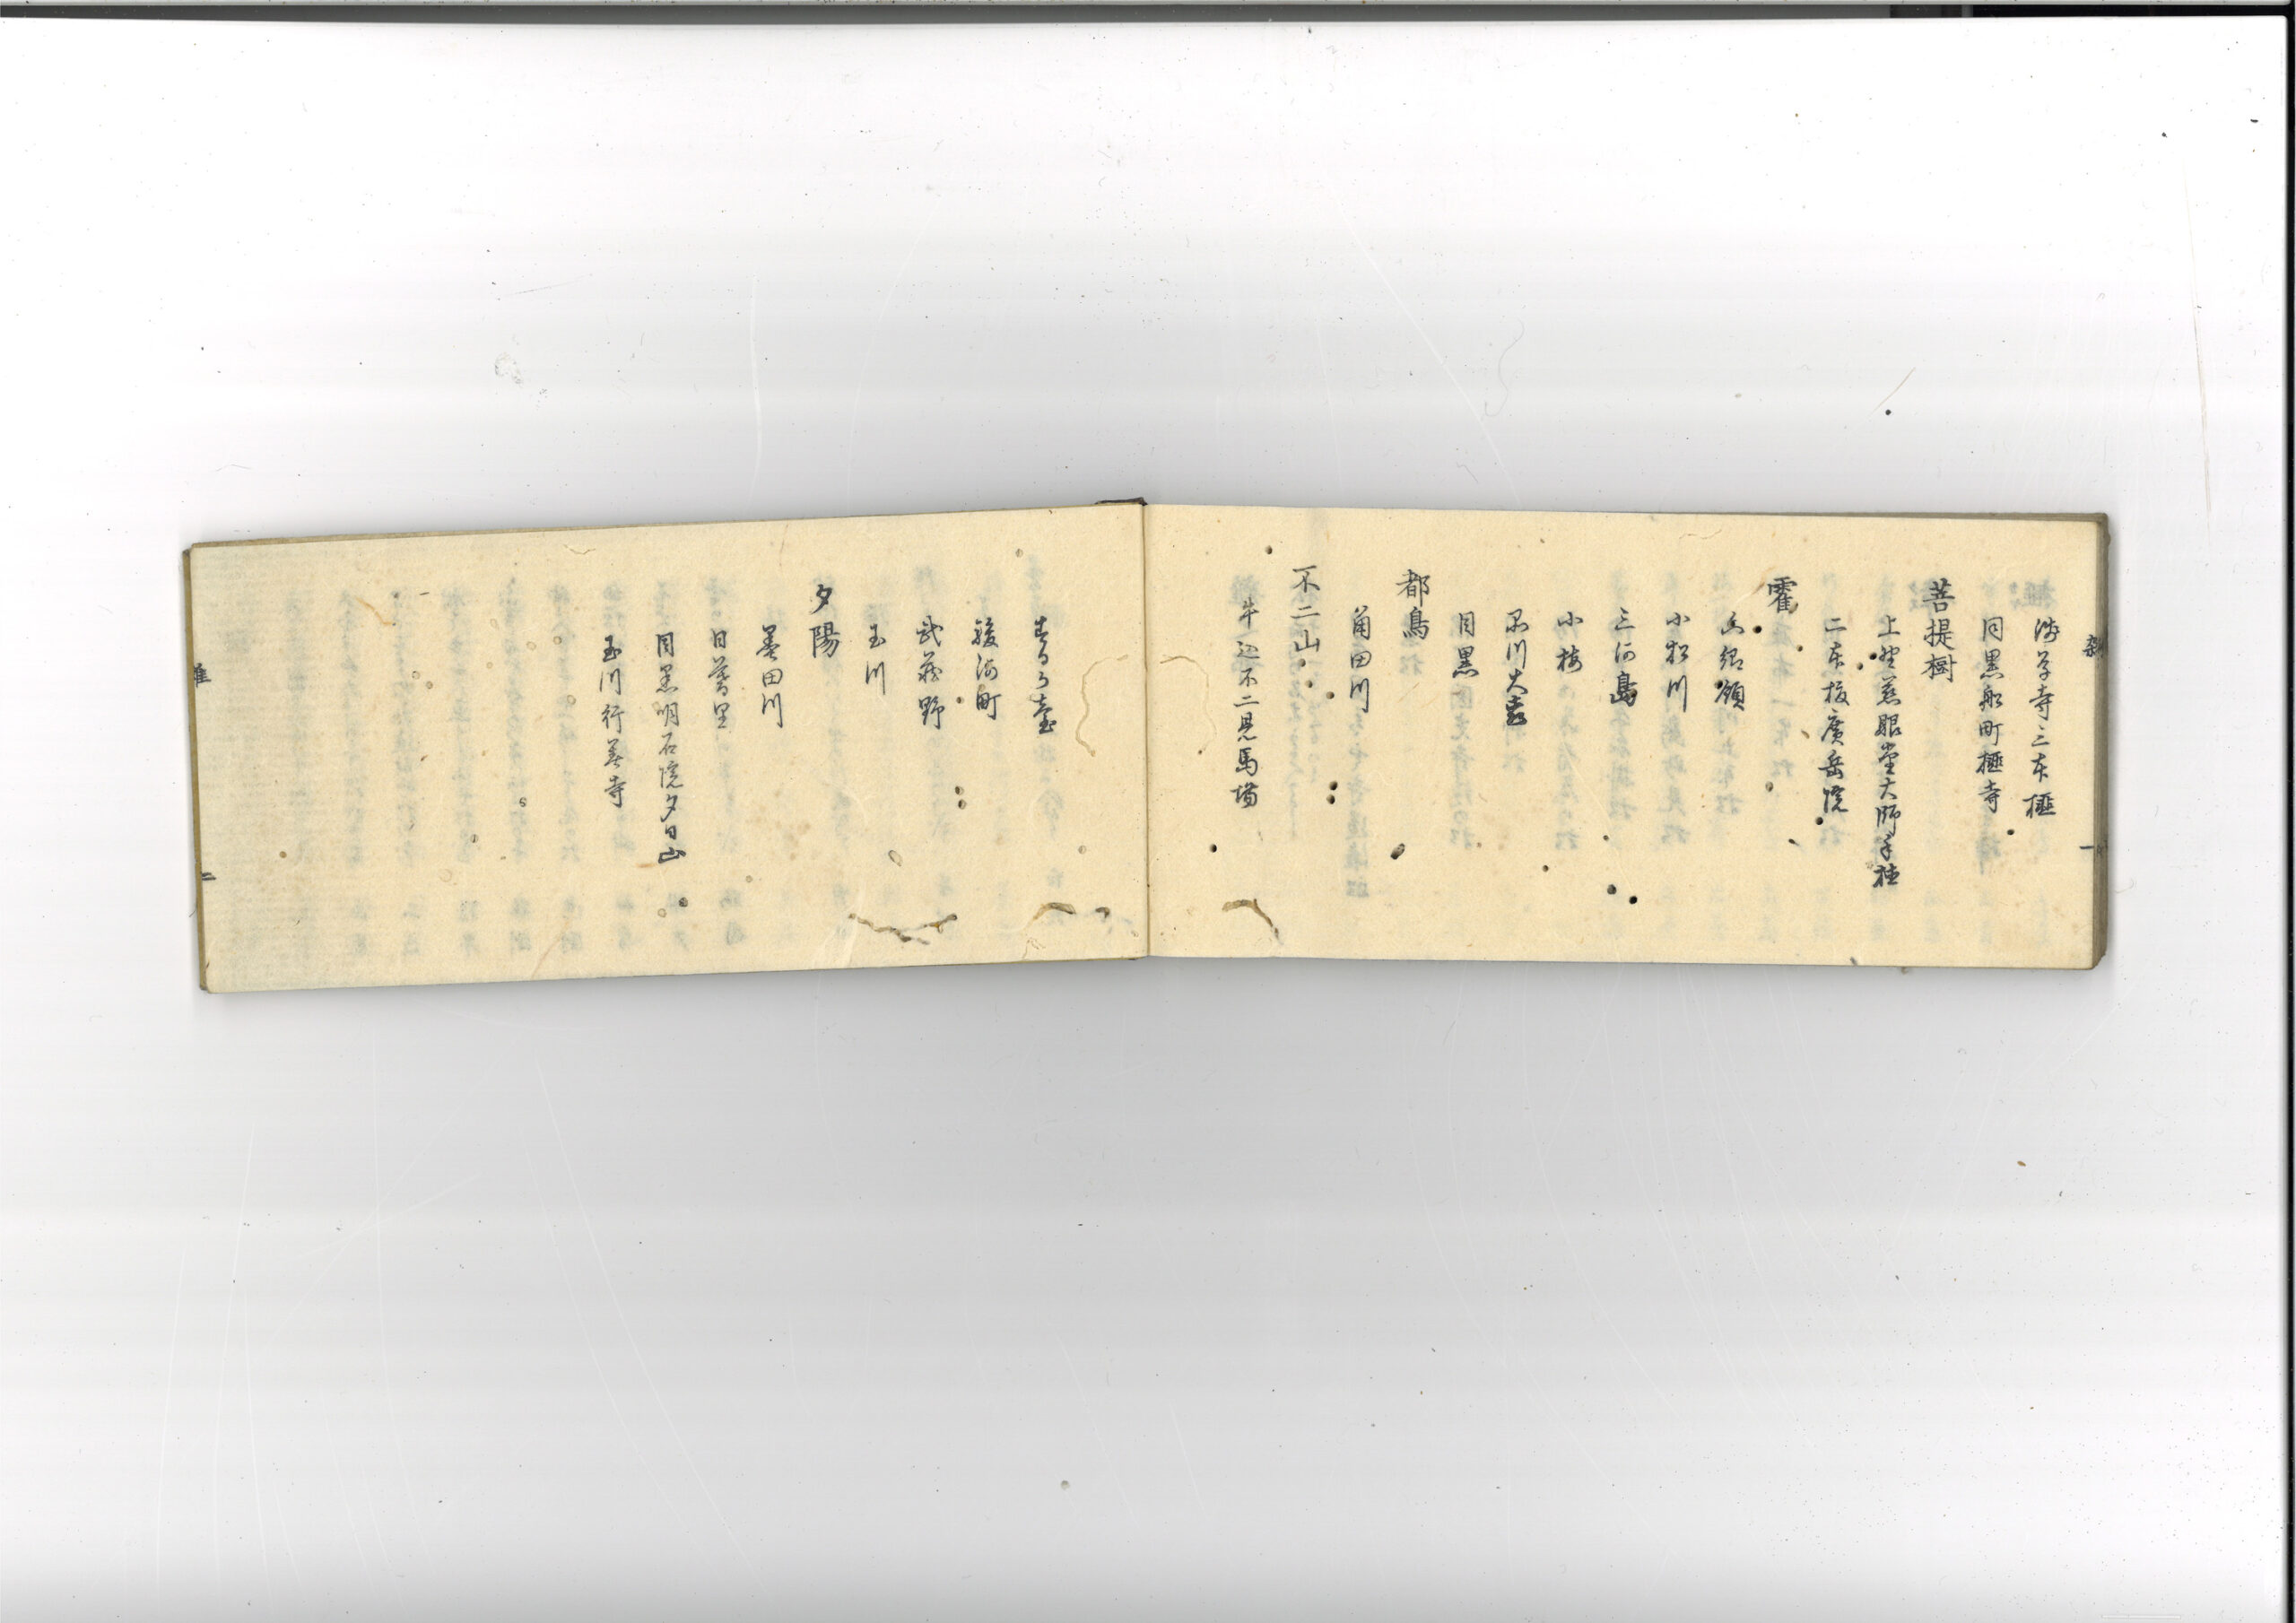 雑 一
浅草寺三本榧
同黒船町榧寺
菩提樹
上野慈眼堂大師手植
二本榎廣岳院
靏
小松川
三河島
小梅
品川大森
目黒
都鳥
角田川
不二山
牛込不二見馬場
駿河町
武蔵野
玉川
夕陽
墨田川
日暮里
目黒明石院夕日山
玉川行善寺
二